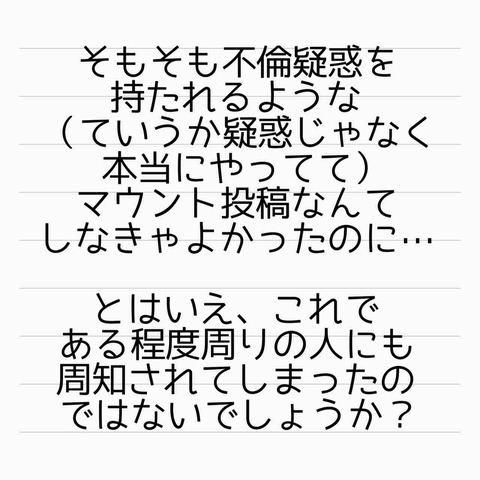 そもそも不倫疑惑を
持たれるような
（ていうか疑惑じゃなく
本当にやってて）
マウント投稿なんて
しなきゃよかったのに…
とはいえ、これで
ある程度周りの人にも
周知されてしまったの
ではないでしょうか？